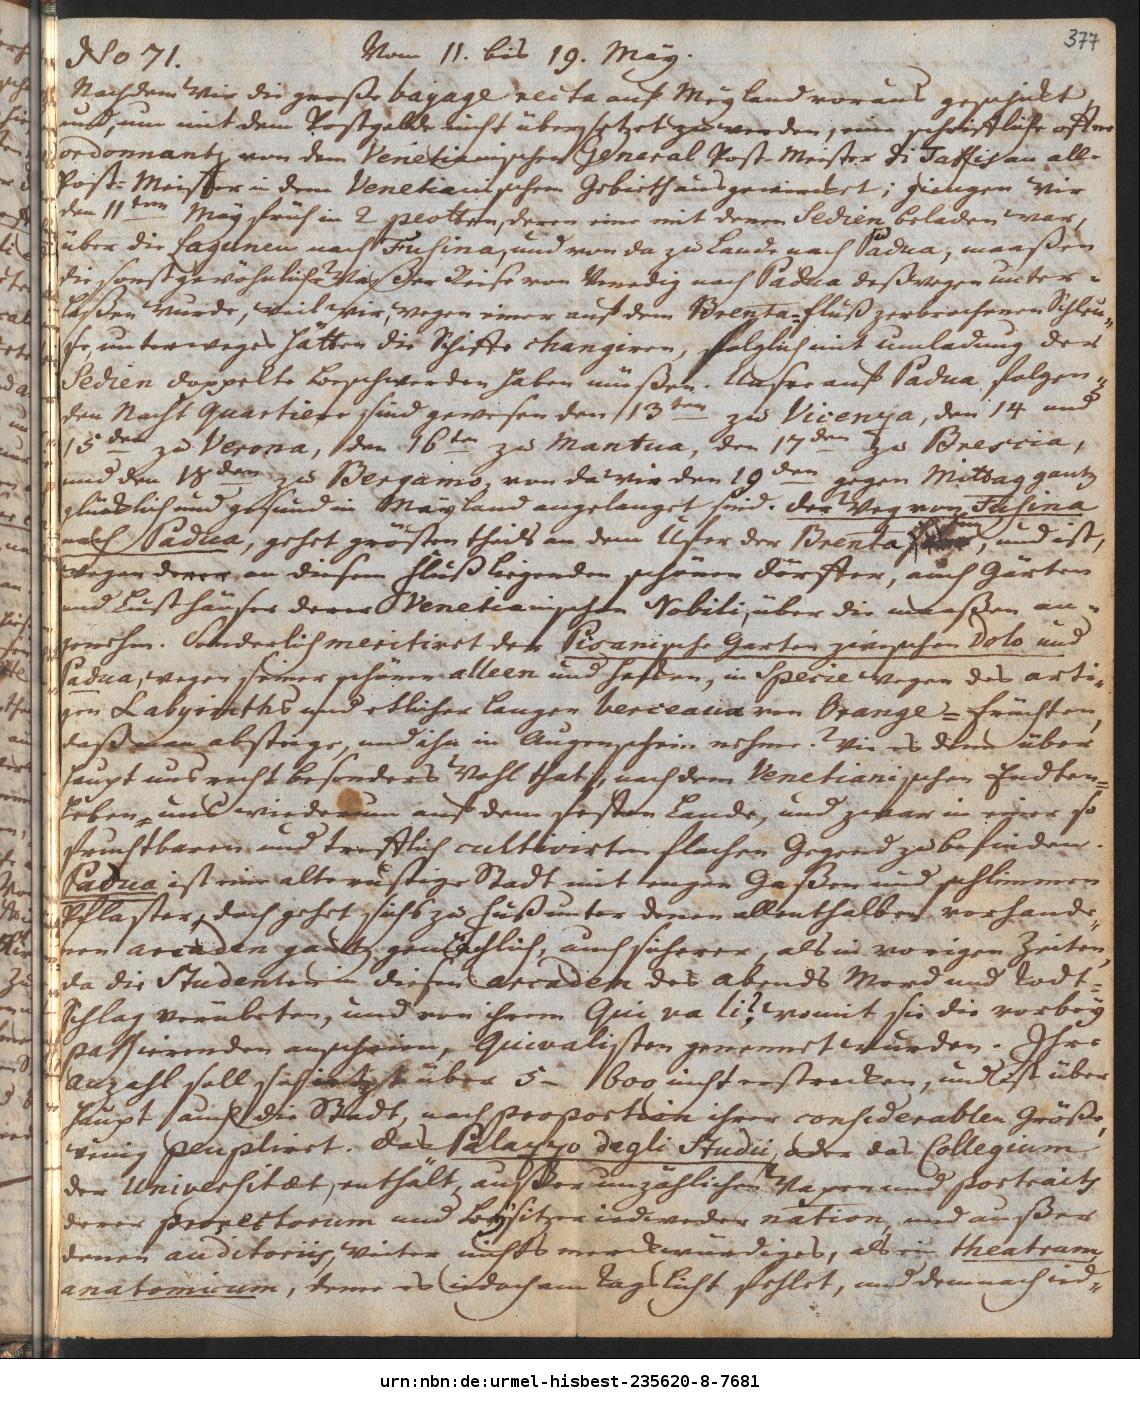 377
No 71. Vom 11. bis 19. May.
Nachdem Wir die große bagage recta auf Meyland voraus geschickt,
und, um mit dem Postgelde nicht übersetzet zu werden, eine schriftliche offne
ordonnantz von dem Venetianischen General Post-Meister di Tassis an alle
Post-Meister in dem Venetianischen Gebieth ausgewircket; giengen Wir
den 11ten May früh in 2 peotten, deren eine mit denen Sedien beladen war,
über die Lagunen nach Fusina, und von da zu Lande nach Padua, maaßen
die sonst gewöhnliche Wasser Reise von Venedig nach Padua deßwegen unter-
laßen wurde, weil wir, wegen einer auf dem Brenta-Fluß zerbrochenen Schleu-
se, unterweges hätten die Schiffe changiren, folglich mit umladung der
Sedien doppelte beschwerden haben müßen. Unsre auf Padua folgen-
den Nacht quartiere sind gewesen den 13ten zu Vicenza, den 14 und
15den zu Verona, den 16ten zu Mantua, den 17den zu Brescia,
und den 18den zu Bergamo, von da wir den 19den gegen Mittag gantz
glücklich und gesund in Mayland angelanget sind. Der Weg von Fusina
nach Padua, gehet größten theils an dem Ufer der Brenta hin, und ist,
wegen derer an diesem Fluß liegenden schönen Dörffer, auch Gärten
und Lusthäuser derer Venetianischen Nobili, über die maaßen an-
genehm. Sonderlich meritiret der Pisanische Garten zwischen Dolo und
Padua, wegen seiner schönen alleen und hecken, in Specie wegen des arti-
gen Labyrinths und etlicher langen berceaux von Orange-Früchten,
daß man absteige, und ihn in Augenschein nehme. Wie es denn über
haupt uns recht besonders Wohl that, nach dem Venetianischen Endten-
leben, uns wiederum auf dem festen Lande, und zwar in einer so
fruchtbaren und trefflich cultivirten flachen Gegend zu befinden.
Padua ist eine alte rustige Stadt mit engen Gaßen und schlimmen
Pflaster, doch gehet sichs zu Fuß unter denen allenthalben vorhande-
nen arcaden gantz gemächlich, auch sicherer, als in vorigen Zeiten,
da die Studenten in diesen arcaden des abends Mord und Todt-
Schlag verübeten, und von ihrem Qui va li? womit sie die vorbey
passierenden anschrien, Quivalisten genennet wurden. Ihre
Anzahl soll sich itzt über 5- 600 nicht erstrecken, und ist über
haupt auch die Stadt, nach proportion ihrer considerablen Größe,
wenig peupliret. Das Palazzo degli Studii, oder das Collegium
der Universitæt, enthält, außer unzählichen Wapen und portraits
derer prorectorum und Beysitzer iedweder nation, und außer
denen auditoriis, weiter nichts merckwürdiges, als ein theatrum
anatomicum, deme es iedoch am Tags licht fehlet, und demnach ied-
urn:nbn:de:urmel-hisbest-235620-8-7681